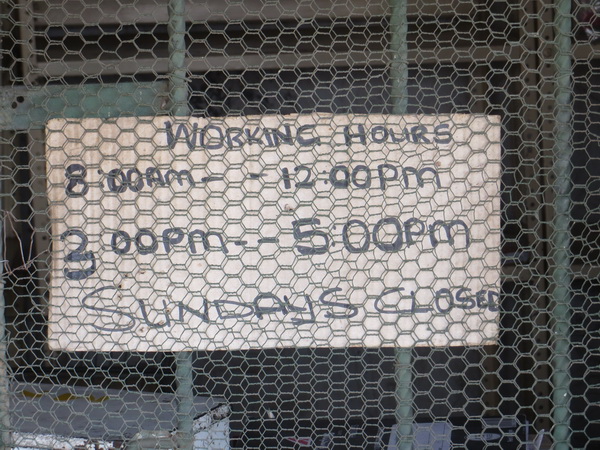 WORKING HOURS
8:00AM - - 12:00PM
2:00PM - - 5:00PM
SUNDAYS CLOSED